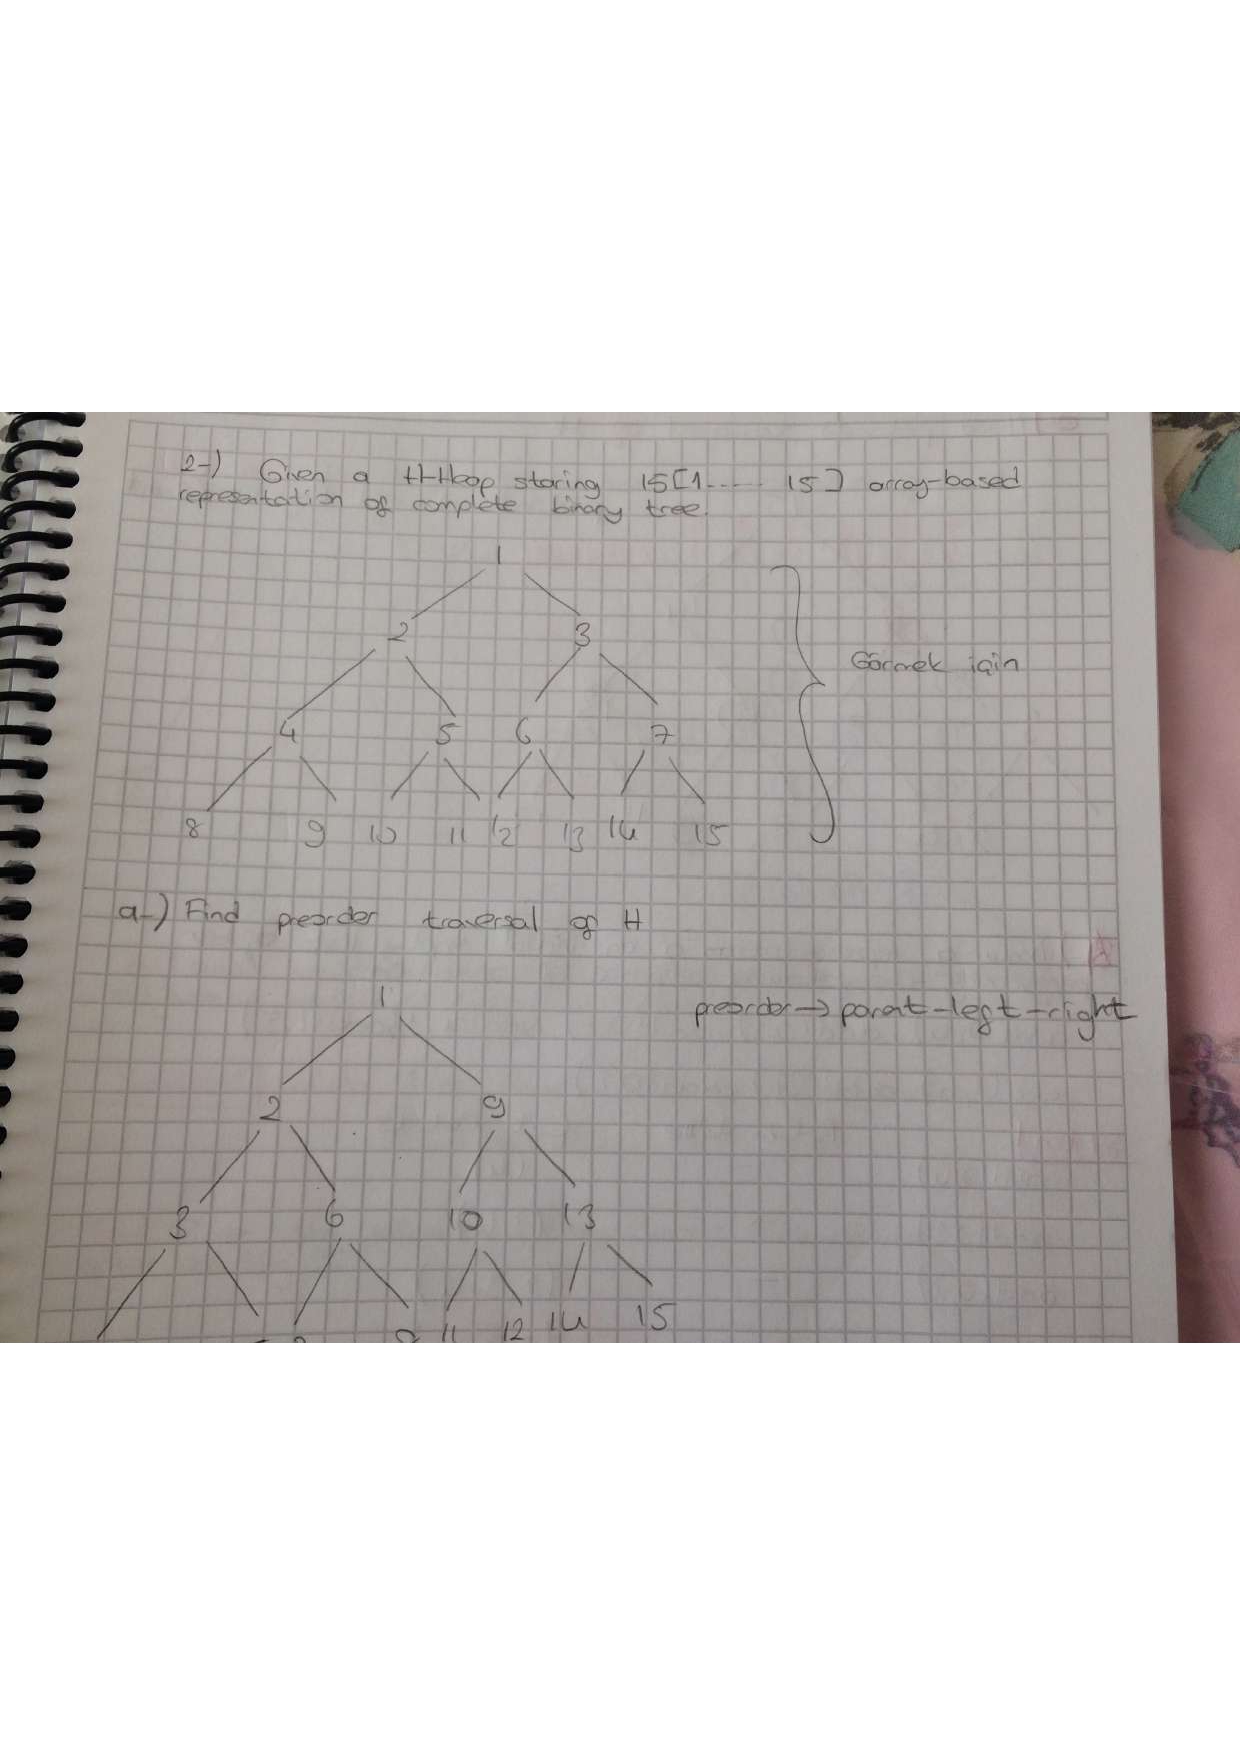 2-) Given a H-Heap storing 15[1..... 15] array-based
representation of complete binary tree.
1
2 3
Görmek için
4 5 6 7
8 9 10 11 12 13 14 15
a-) Find preorder traversal of H
1
preorder → parent-left-right
2 9
3 6 10 13
11 12 14 15